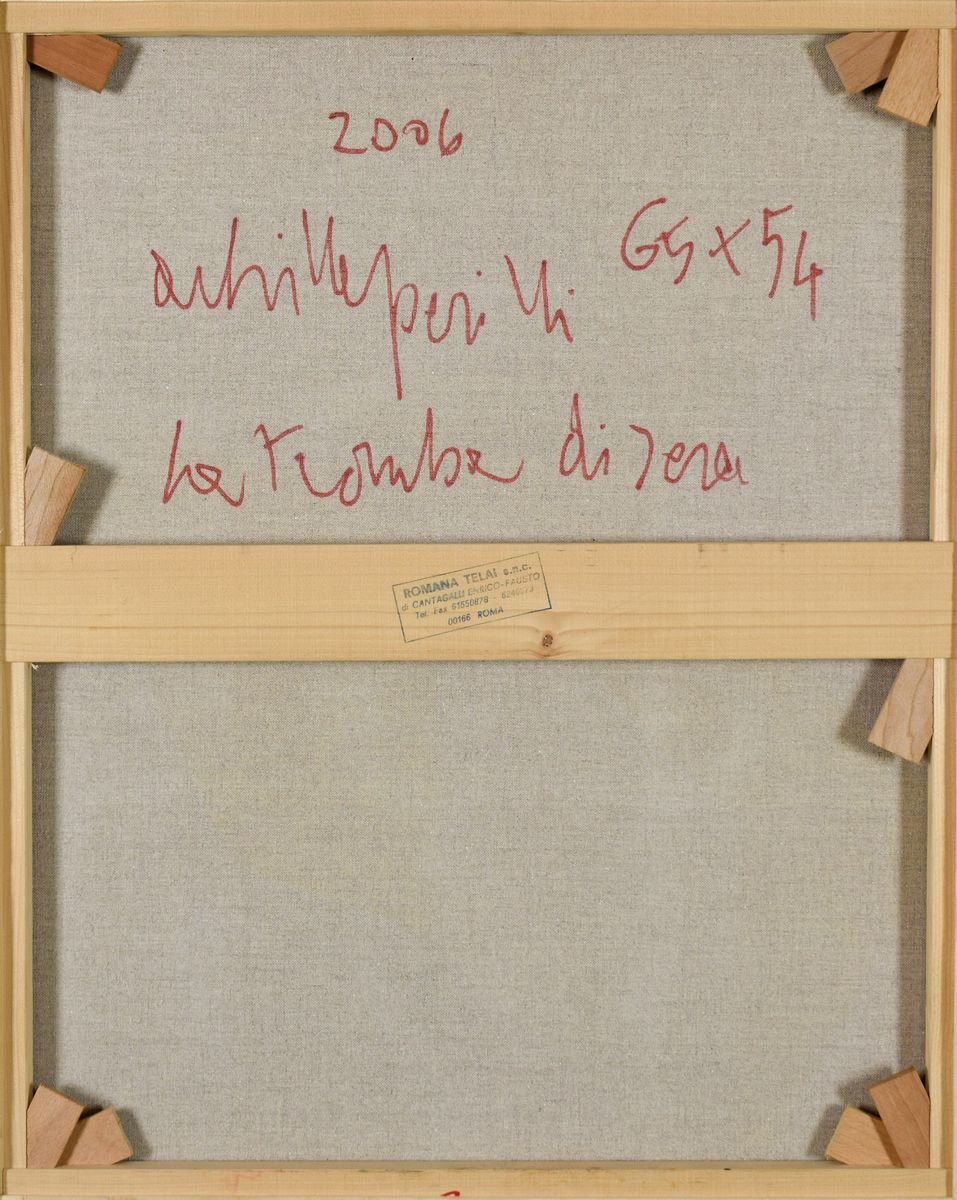 2006
achille perilli
65 x 54
La Tromba di sera
ROMANA TELAI s.n.c.
di CANTAGALLI ENRICO-FAUSTO
Tel. Fax 61550878 -
00166 ROMA